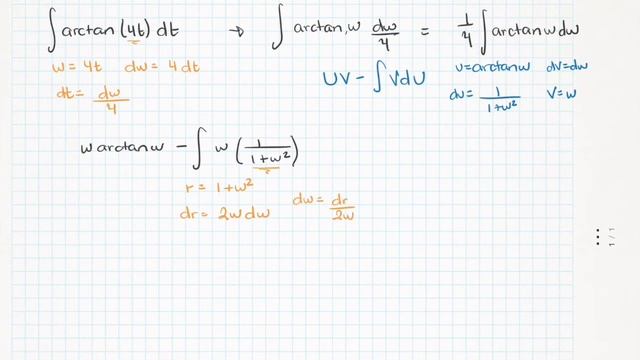 ∫ arctan (4t) dt → ∫ arctan w dw/4 = 1/4 ∫ arctan w dw
w = 4t dw = 4 dt
dt = dw/4
UV - ∫ V dU
u = arctan w dV = dw
du = 1/(1+w²) V = w
w arctan w - ∫ w (1/(1+w²))
r = 1+w²
dr = 2w dw dw = dr/2w
1 / 1